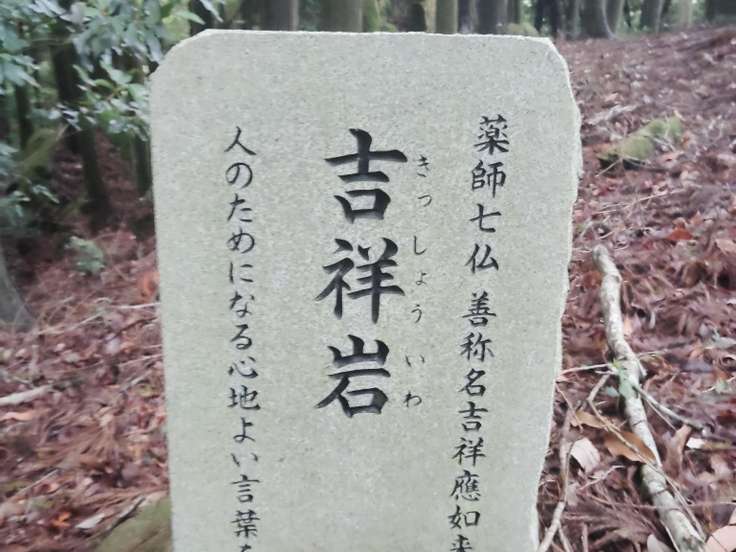 薬師七仏 善称名吉祥應如来
きっしょう いわ
吉祥岩
人のためになる心地よい言葉を